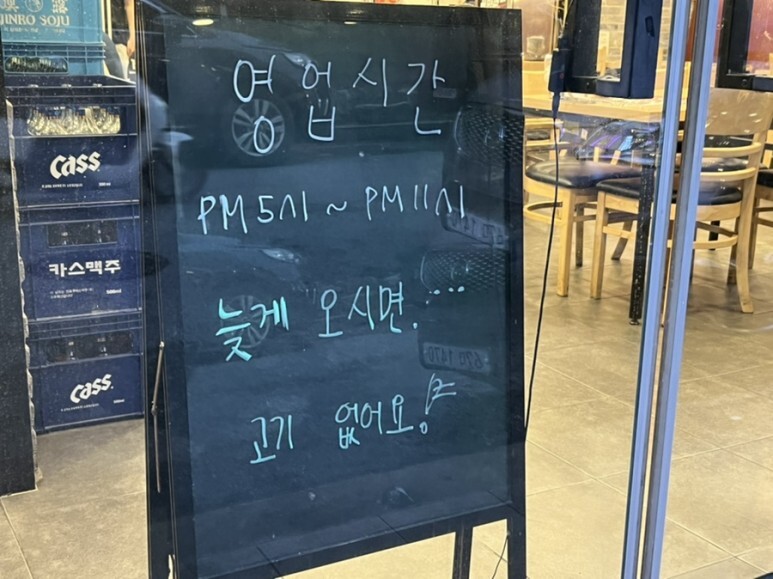 JINRO SOJU
영업시간
Cass
PM 5시 ~ PM 11시
카스맥주
늦게 오시면....
Cass
고기 없어요!